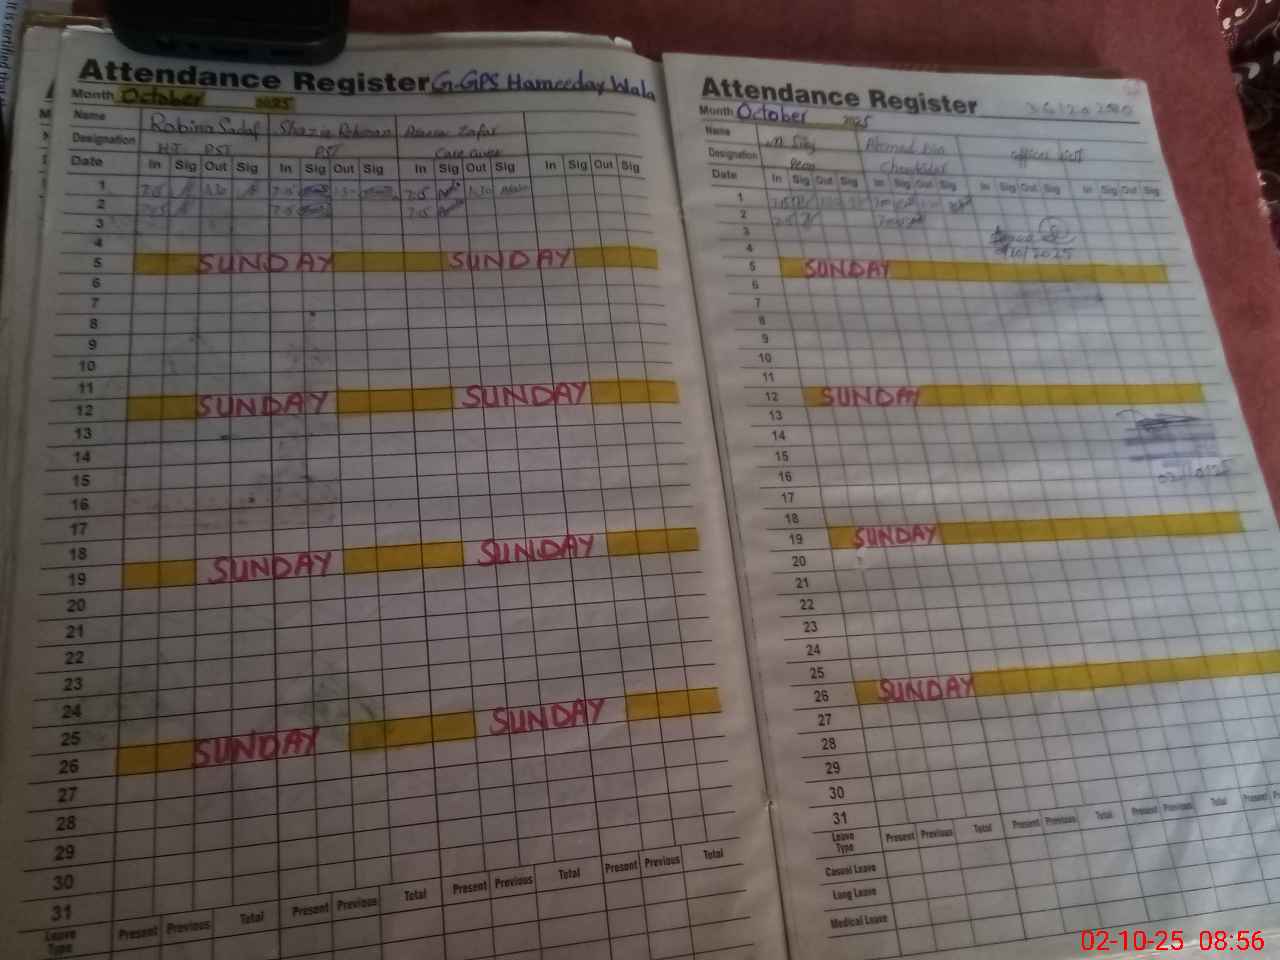 It is certified tha
Attendance Register G-GPS Hameeday Wala
Month October 2025
Name Robina Sadaf Shazia Rehman Zafar
Designation HT PST PST Care giver
Date In Sig Out Sig In Sig Out Sig In Sig Out Sig In Sig Out Sig
1 7:15 7:15 7:15
2 7:15 7:15 7:15
3
4
5 SUNDAY SUNDAY
6
7
8
9
10
11
12 SUNDAY SUNDAY
13
14
15
16
17
18
19 SUNDAY SUNDAY
20
21
22
23
24
25
26 SUNDAY SUNDAY
27
28
29
30
31
Leave Type Present Previous Total Present Previous Total Present Previous Total Present Previous Total
Attendance Register
Month October 2025
Name Ahmad
Designation Peon Chowkidar
Date In Sig Out Sig In Sig Out Sig In Sig Out Sig In Sig Out Sig
1
2
3
4
5 SUNDAY
6
7
8
9
10
11
12 SUNDAY
13
14
15
16
17
18
19 SUNDAY
20
21
22
23
24
25
26 SUNDAY
27
28
29
30
31
Leave Type Present Previous Total Present Previous Total Present Previous Total Present
Casual Leave
Long Leave
Medical Leave
02-10-25 08:56